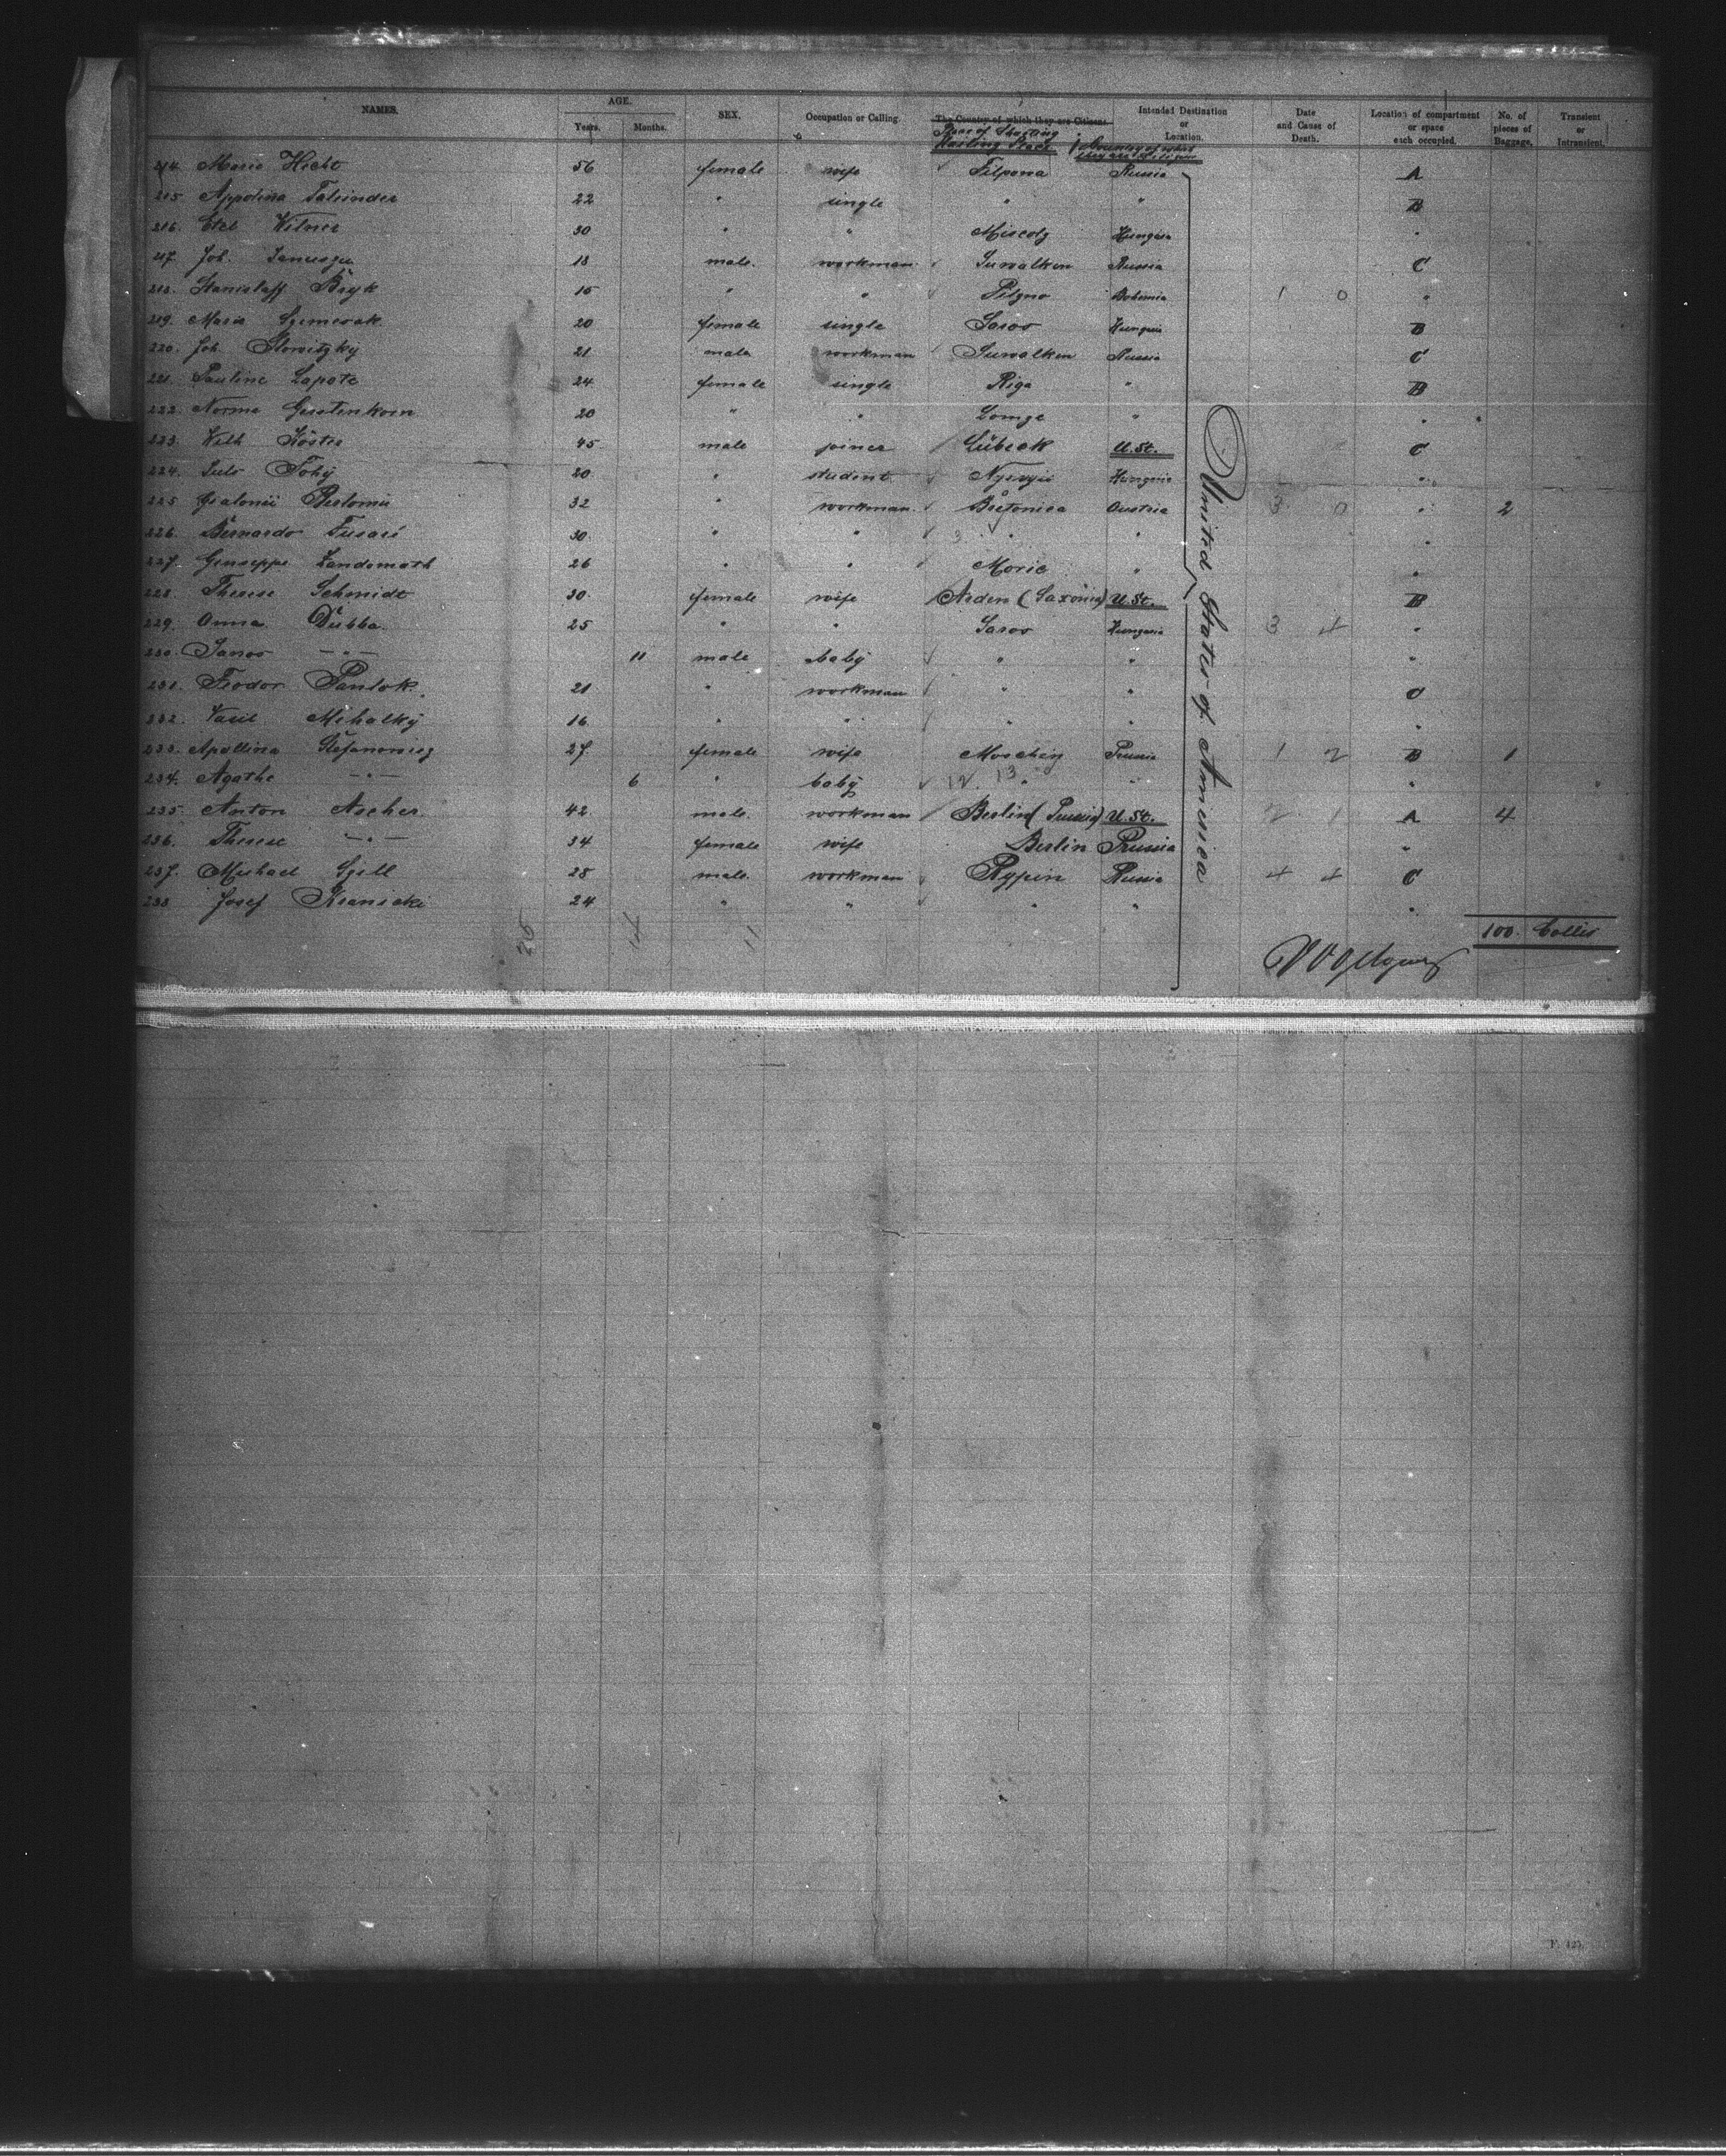 NAMES. AGE. Years. Months. SEX. Occupation or Calling. The Country of which they are Citizens. Intended Destination or Location. Date and Cause of Death. Location of compartment or space each occupied. No. of pieces of Baggage. Transient or Intransient.
Place of Starting Country of what
214. Maria Hecht 56 female wife Filpona Russia A
215. Appolina 22 " single " " B
216. Etel Wilner 30 " " Miscolz Hungaria "
217. Joh. 18 male workman Suwalken Russia C
218. Stanislaff Bryk 15 " " Pilzno Bohemia 1 0 "
219. Maria 20 female single Saros Hungaria B
220. Joh. Slowitzky 21 male workman Suwalken Russia C
221. Pauline Lapate 24 female single Riga " B
222. Norma Gerstenkorn 20 " " Lomza " "
223. Wilh Köster 45 male joiner Lübeck U.St. C
224. Tohÿ 20 " student Hungaria "
225. Bertomii 32 " workman Bretonica Austria 3 0 " 2
226. Bernardo Fusari 30 " " 3 " " "
227. Genseppe Zandomath 26 " " Morie " "
228. Therese Schmidt 30 female wife Arden (Saxonia) U.St. B
229. Anna Dubba 25 " " Saros Hungaria 3 4 "
230. Janos — " — 11 male baby " " "
231. Feodor Pantok. 21 " workman " " C
232. Vasil Mihalkÿ 16 " " " " "
233. Apollina Stefanowicz 27 female wife Moschin Prussia 1 2 B 1
234. Agathe — " — 6 " baby 12 13 " " "
235. Anton Ascher 42 male workman Berlin (Prussia) U.St. 2 1 A 4
236. Therese — " — 34 female wife Berlin Prussia "
237. Michael Sgill 28 male workman Rypin Russia 4 4 C
238 Josef Kranicki 24 " " " " "
United States of America
14 11
100. Collis
F. 125.